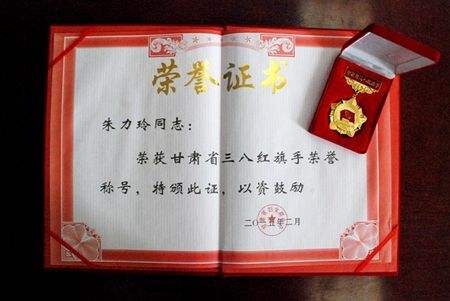 荣誉证书
朱力玲同志：
荣获甘肃省三八红旗手荣誉
称号，特颁此证，以资鼓励
二〇一五年二月